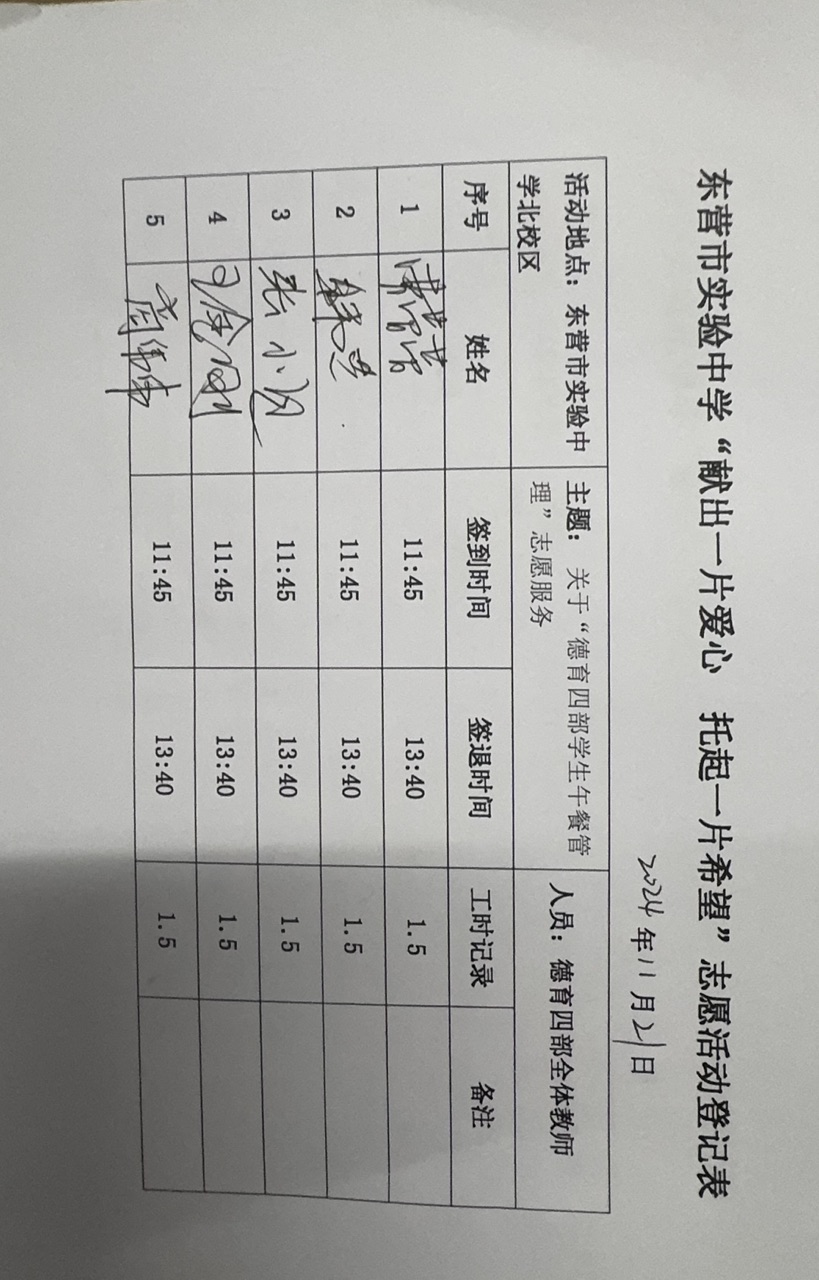 东营市实验中学“献出一片爱心 托起一片希望”志愿活动登记表
2024年11月21日
活动地点：东营市实验中
学北校区
主题：关于“德育四部学生午餐管
理”志愿服务
人员：德育四部全体教师
序号 姓名 签到时间 签退时间 工时记录 备注
1 11:45 13:40 1.5
2 11:45 13:40 1.5
3 11:45 13:40 1.5
4 11:45 13:40 1.5
5 11:45 13:40 1.5